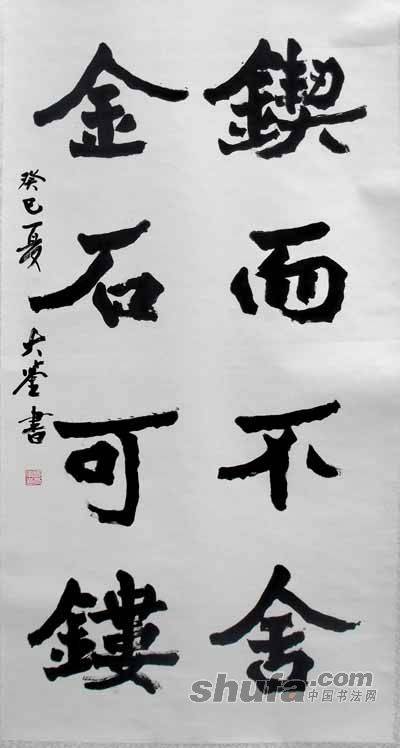 鍥而不舍
金石可鏤
癸巳夏 大蓥書
shufa.com
中国书法网